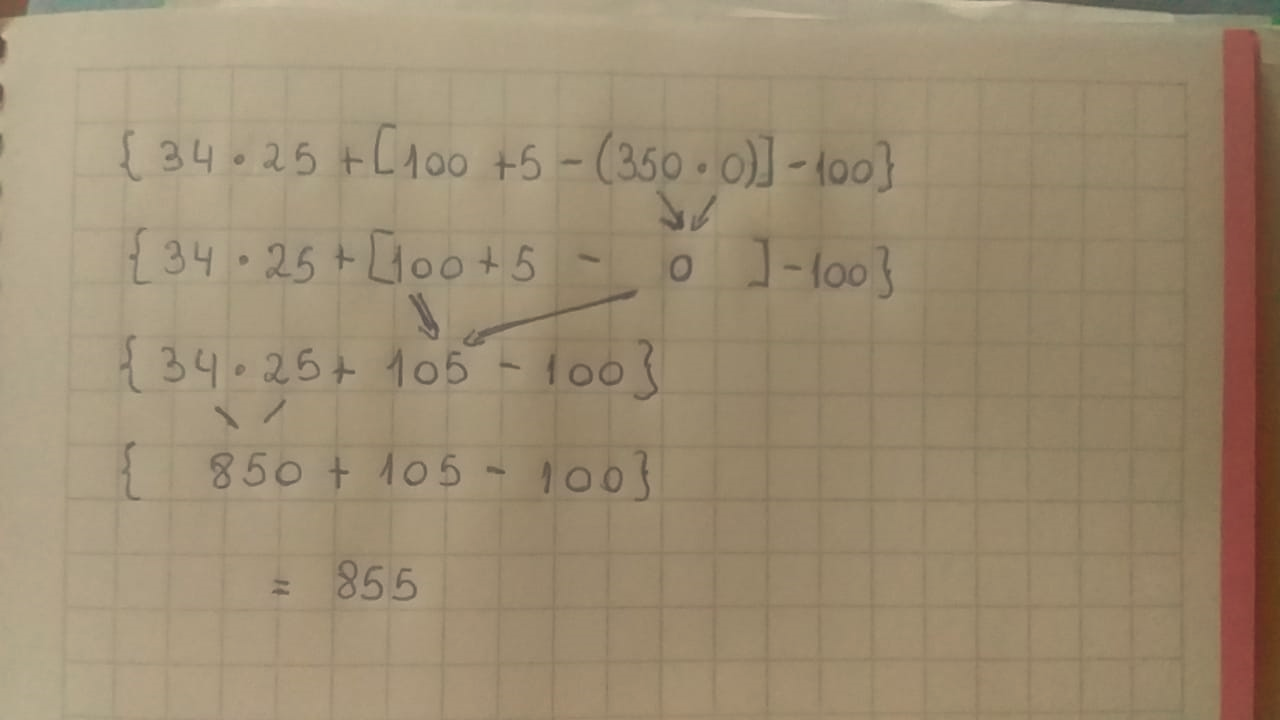 { 34 · 25 + [100 + 5 - (350 · 0)] - 100}
{ 34 · 25 + [100 + 5 - 0 ] - 100}
{ 34 · 25 + 105 - 100}
{ 850 + 105 - 100}
= 855